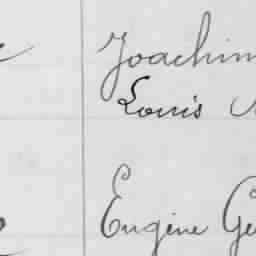 Joachim
Louis
Eugène Ge